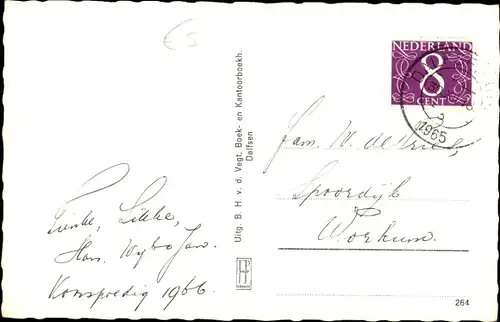 €5
NEDERLAND
8
CENT
1965
Fam. W. de Vries,
Spoordijk
Workum.
Uitg. B. H. v. d. Vegt, Boek- en Kantoorboekh.
Dalfsen
Sibbe,
Han. Wybo Jan.
Voorspoedig 1966.
264